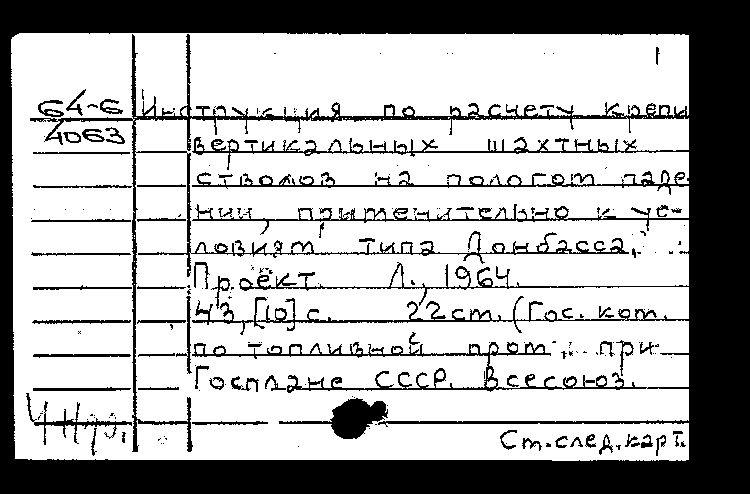 1
64-6 Инструкция по расчету крепи
4063 вертикальных шахтных
стволов на пологом паде-
нии, применительно к ус-
ловиям типа Донбасса.
Проект. Л., 1964.
43, [10] с. 22 см. (Гос. ком.
по топливной пром. при
Госплане СССР. Всесоюз.
См. след. карт.